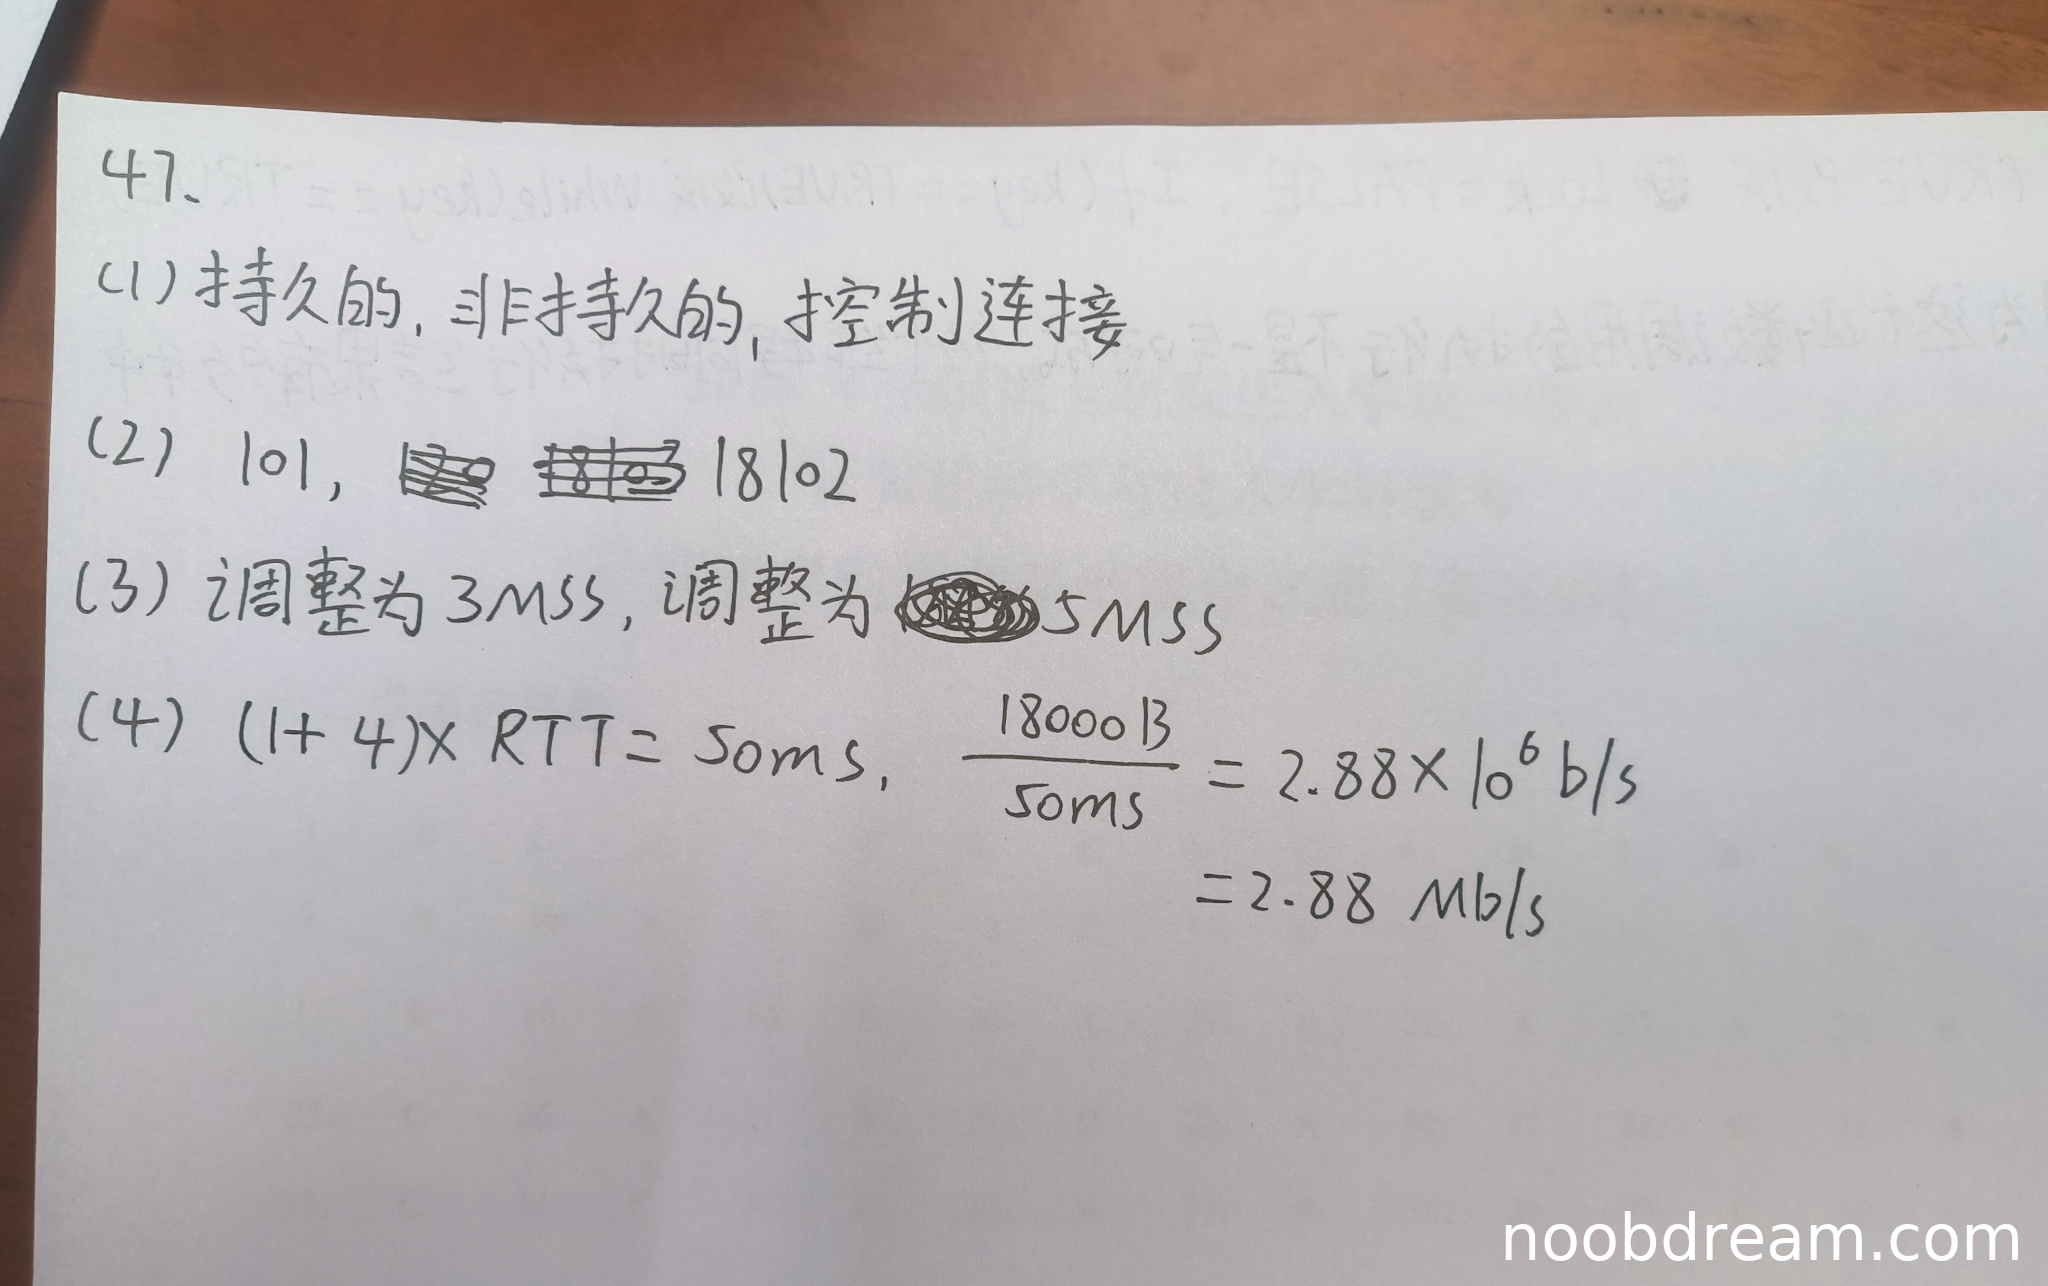 47.
(1) 持久的, 非持久的, 控制连接
(2) 101, 18102
(3) 调整为 3MSS, 调整为 5MSS
(4) (1+4)× RTT = 50ms, 18000B / 50ms = 2.88×10⁶ b/s
=2.88 Mb/s
noobdream.com